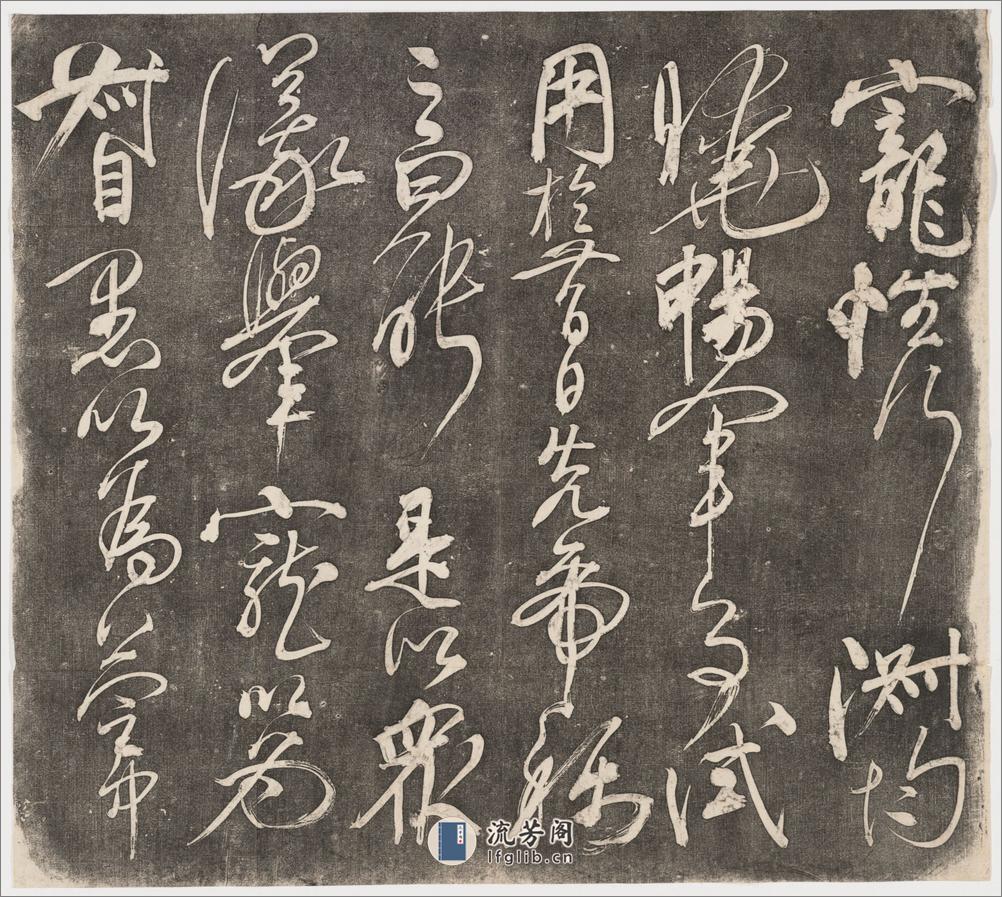 寵性行淑均
曉暢軍事試
用於昔日先帝稱
之曰能是以眾
議舉寵以為
督愚以為營中
流芳阁
lfglib.cn